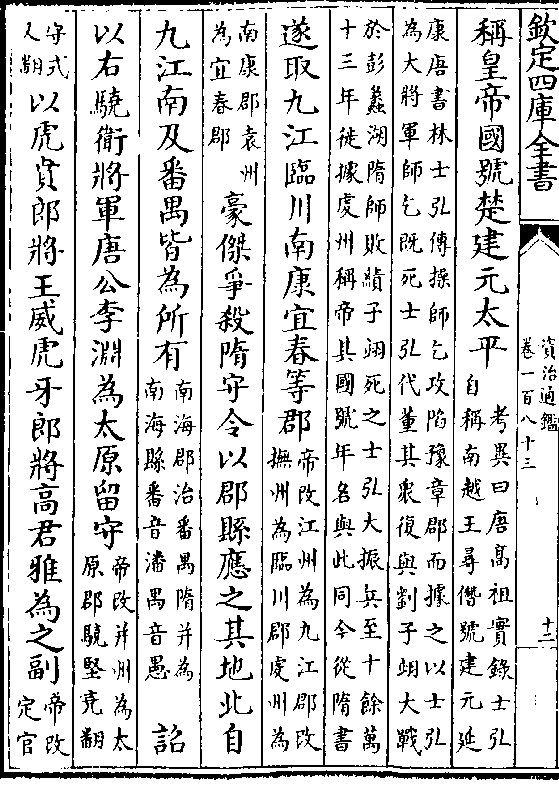 欽定四庫全書
資治通鑑
卷一百八十三
十二
稱皇帝國號楚建元太平
考異曰唐髙祖實錄士弘
自稱南越王尋僭號建元延
康唐書林士弘傳操師乞攻陷豫章郡而據之以士弘
為大將軍師乞既死士弘代董其衆復與劉子翊大戰
於彭蠡湖隋師敗績子翊死之士弘大振兵至十餘萬
十三年徙據虔州稱帝其國號年名與此同今從隋書
遂取九江臨川南康宜春等郡
帝改江州為九江郡改
撫州為臨川郡虔州為
南康郡袁州
為宜春郡
豪傑爭殺隋守令以郡縣應之其地北自
九江南及番禺皆為所有
南海郡治番禺隋并為
南海縣番音潘禺音愚
詔
以右驍衛將軍唐公李淵為太原留守
帝改并州為太
原郡驍堅堯翻
守式
又翻
以虎賁郎將王威虎牙郎將高君雅為之副
帝改
定官